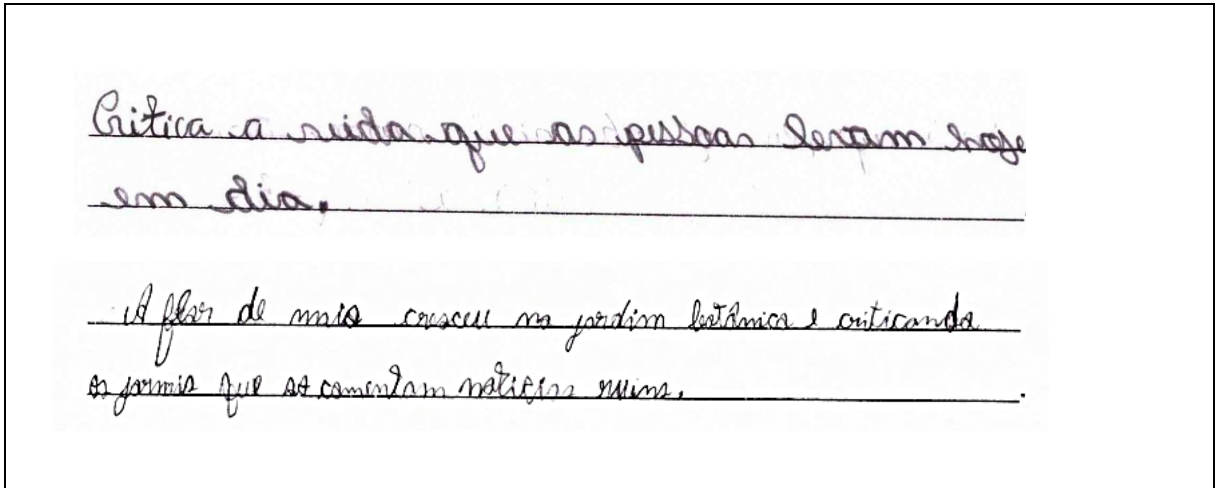 Critica a vida que as pessoas levam hoje
em dia.
A flor de maio cresceu no jardim botânico e criticando
os jornais que só comentam notícias ruins.